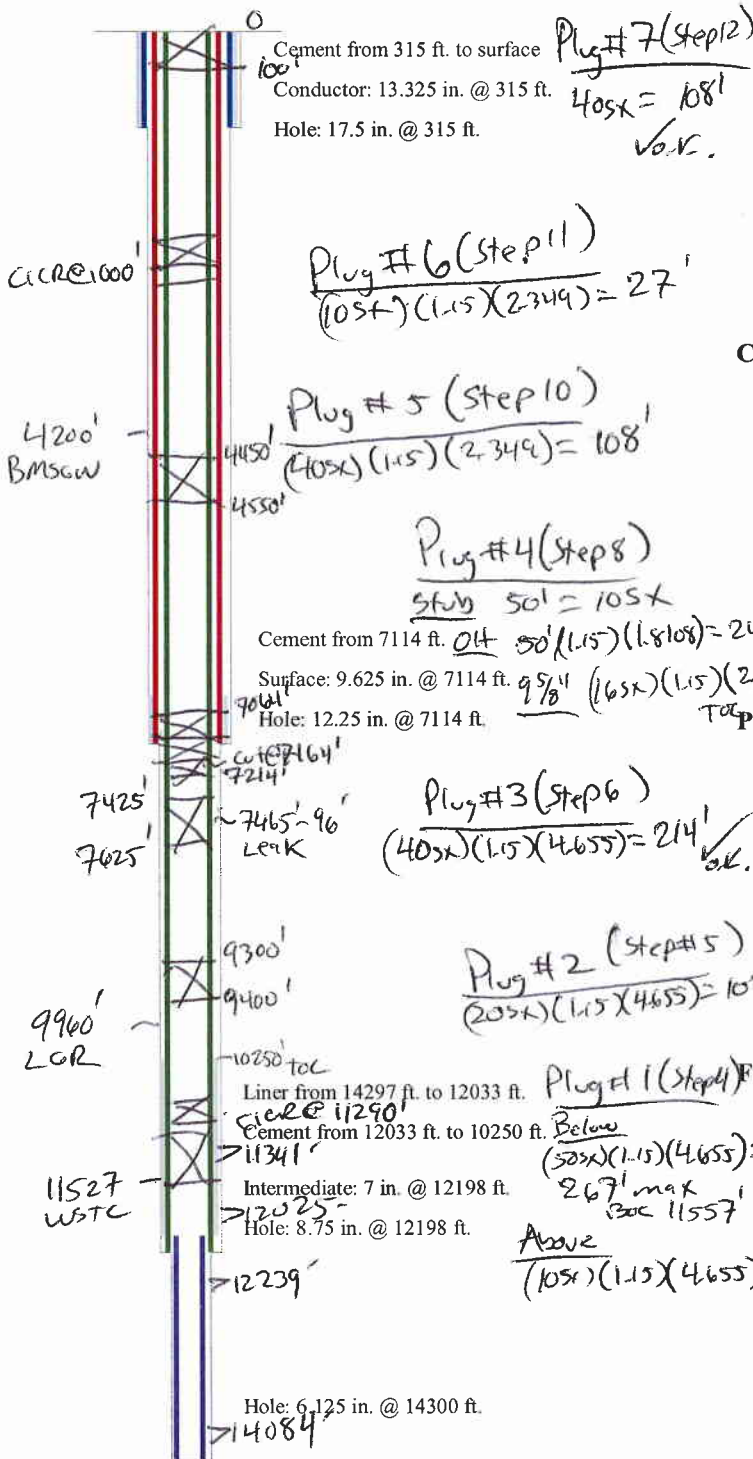 0
100'
Cement from 315 ft. to surface
Conductor: 13.325 in. @ 315 ft.
Hole: 17.5 in. @ 315 ft.
Plug # 7 (Step 12)
40sx = 108'
✓ O.K.
CICR@1000'
Plug # 6 (Step 11)
(10sx)(1.15)(2.349) = 27'
4200'
BMSGW
4450'
4550'
Plug # 5 (Step 10)
(40sx)(1.15)(2.349) = 108'
Plug #4 (Step 8)
Stub 50' = 10sx
Cement from 7114 ft. OH 50'(1.15)(1.8108) =
Surface: 9.625 in. @ 7114 ft. 9 5/8" (16sx)(1.15)
TOC
Hole: 12.25 in. @ 7114 ft.
7064'
cut@7164'
7214'
7425'
7625'
7465'-96'
Leak
Plug #3 (Step 6)
(40sx)(1.15)(4.655) = 214' ✓ O.K.
9300'
9400'
Plug #2 (Step #5)
(20sx)(1.15)(4.655) =
9960'
LGR
10250' TOC
Liner from 14297 ft. to 12033 ft.
Plug #1 (Step 4)
CICR@ 11290'
Cement from 12033 ft. to 10250 ft.
Below
11341'
(50sx)(1.15)(4.655) =
11527
WSTC
Intermediate: 7 in. @ 12198 ft.
267' max
BOC 11557'
12025-
Hole: 8.75 in. @ 12198 ft.
12239'
Above
(10sx)(1.15)(4.655)
Hole: 6.125 in. @ 14300 ft.
14084'